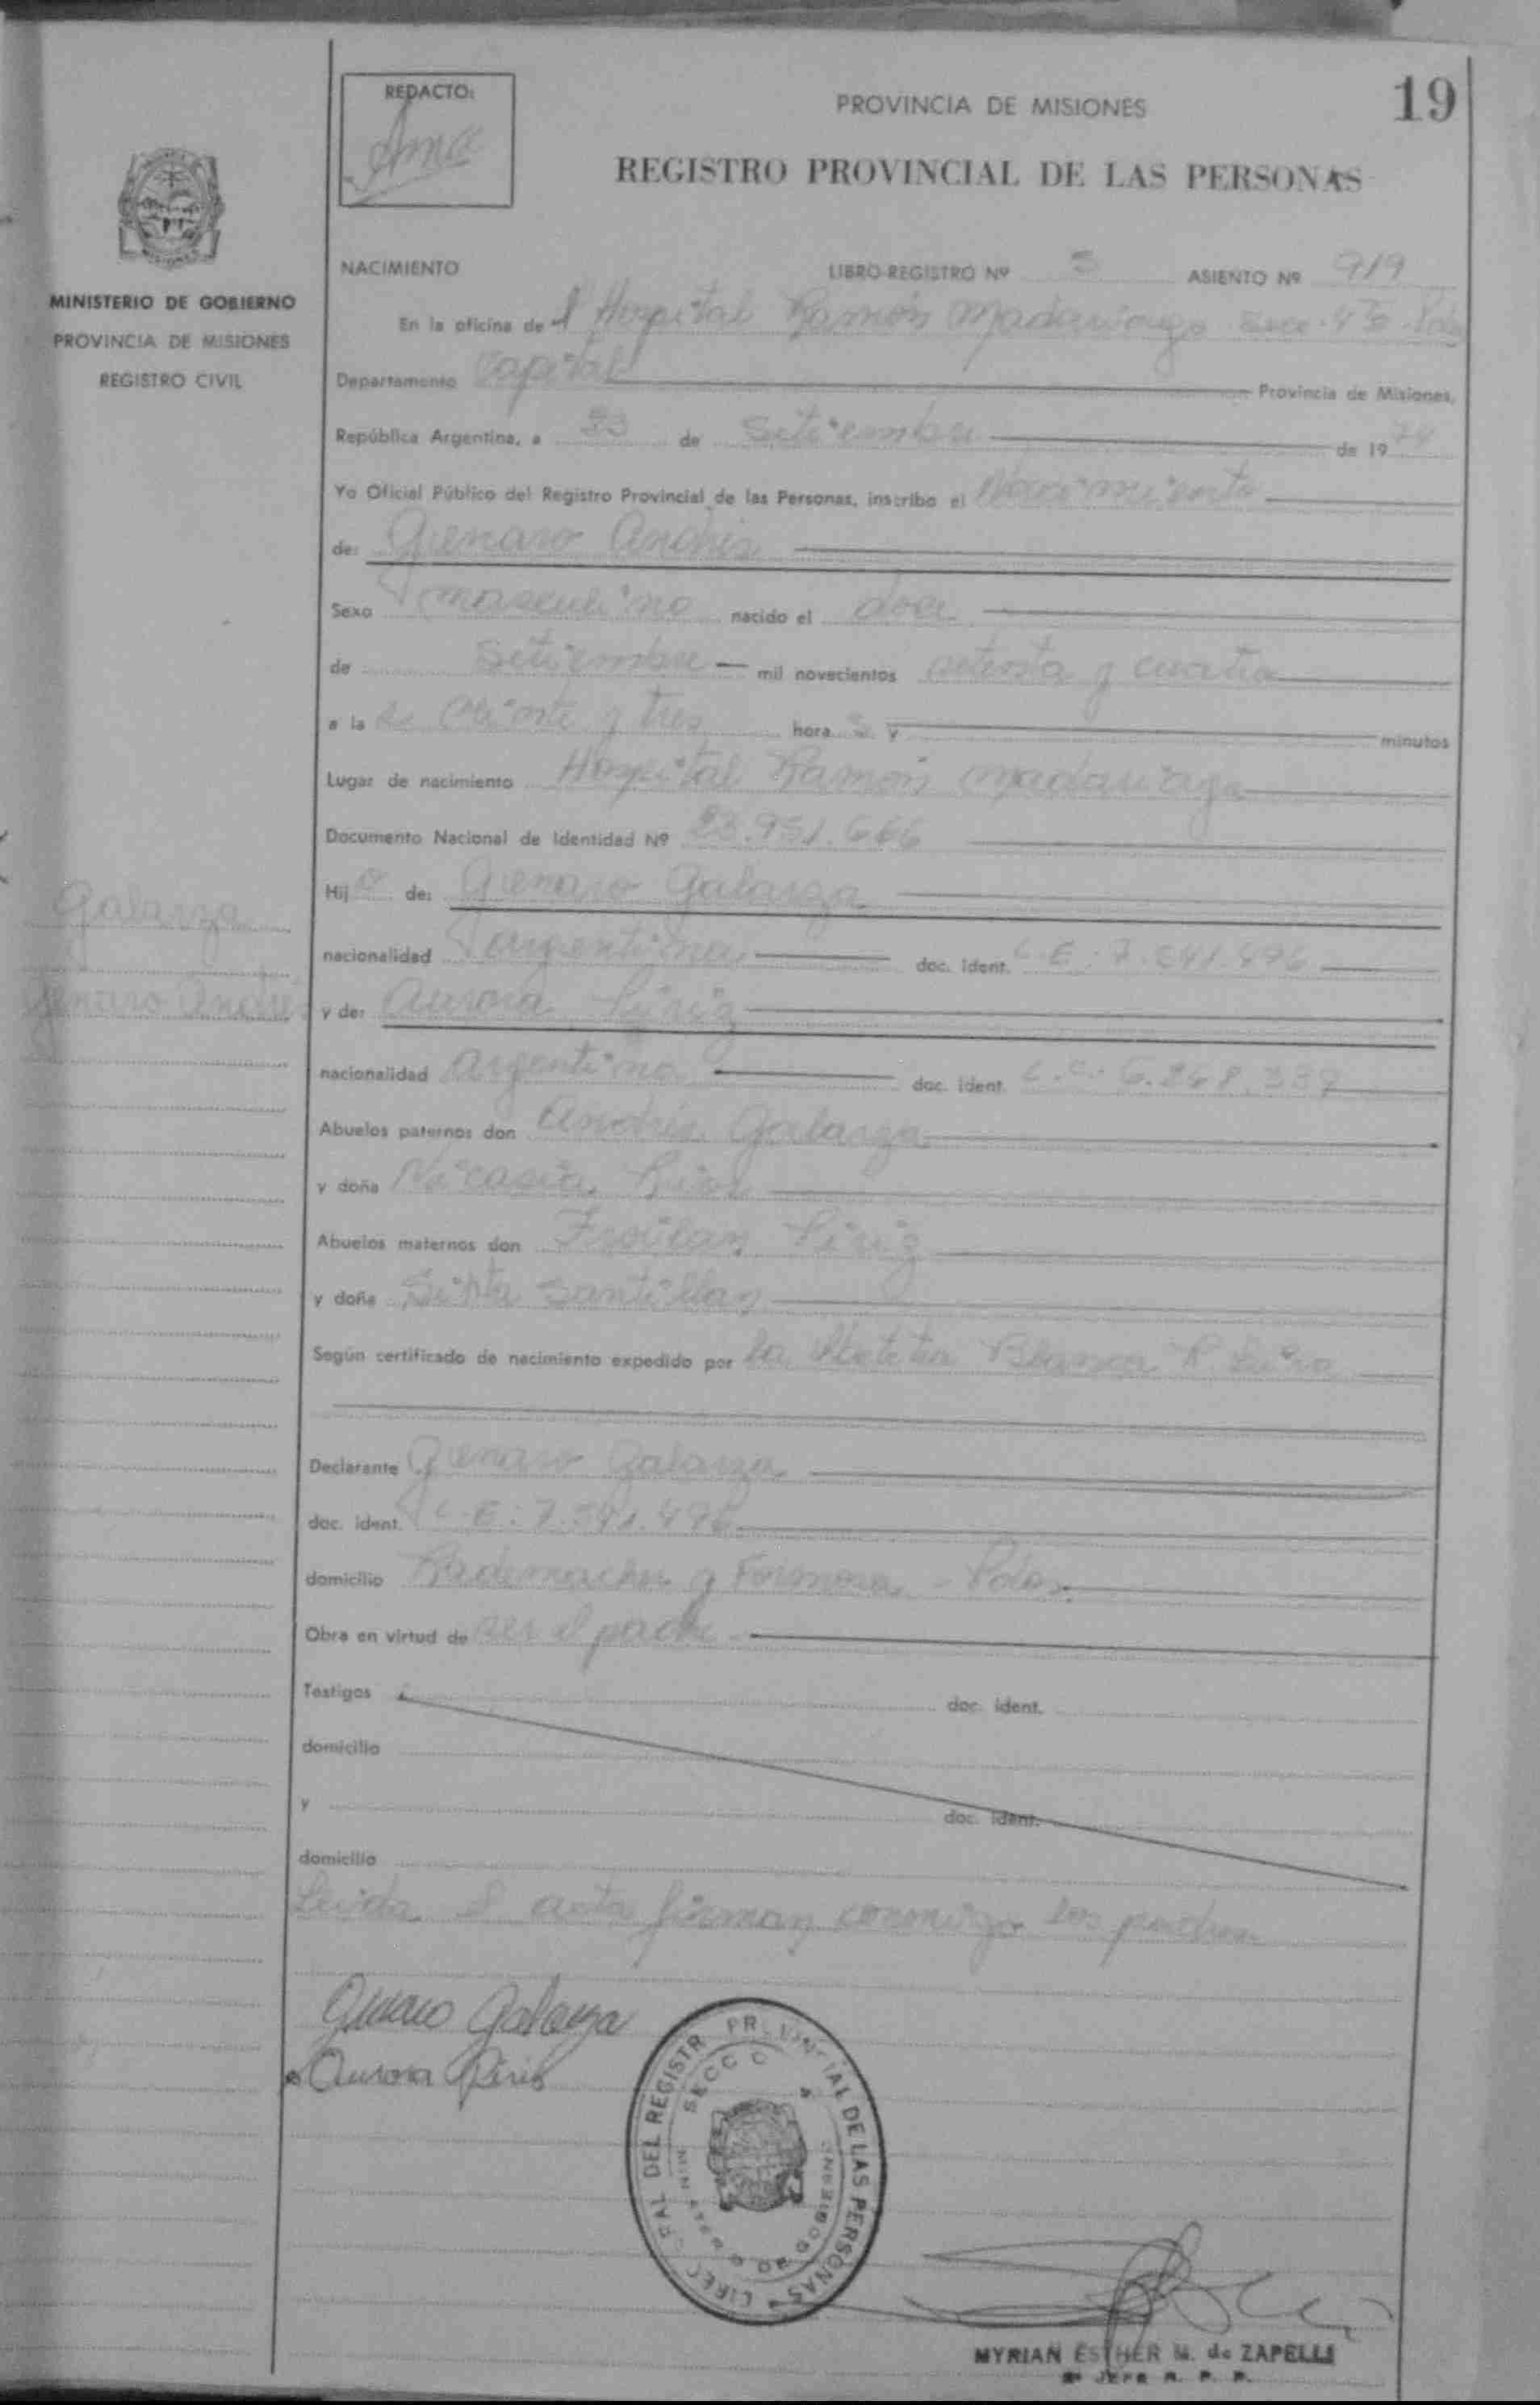 REDACTO:
PROVINCIA DE MISIONES
19
REGISTRO PROVINCIAL DE LAS PERSONAS
MINISTERIO DE GOBIERNO
PROVINCIA DE MISIONES
REGISTRO CIVIL
NACIMIENTO LIBRO-REGISTRO Nº 3 ASIENTO Nº 919
En la oficina del Hospital Ramón Madariaga Secc. 4
Departamento Capital Provincia de Misiones,
República Argentina, a 23 de Setiembre de 1974
Yo Oficial Público del Registro Provincial de las Personas, inscribo el Nacimiento
de: Genaro Andrés
Sexo masculino nacido el doce
de Setiembre mil novecientos setenta y cuatro
a las veinte y tres horas y minutos
Lugar de nacimiento Hospital Ramón Madariaga
Documento Nacional de Identidad Nº 23.951.666
Hijo de: Genaro Galarza
Galarza
nacionalidad argentina doc. ident. L.E. 7.541.496
Genaro Andrés
y de: Aurora Piriz
nacionalidad argentina doc. ident. L.C. 6.868.337
Abuelos paternos don Andrés Galarza
y doña Nicasia
Abuelos maternos don Froilan Piriz
y doña Sixta Santillan
Según certificado de nacimiento expedido por la Obstetra Blanca
Declarante Genaro Galarza
doc. ident. L.E: 7.541.496
domicilio Rademacher y Formosa - Pdas.
Obra en virtud de ser el padre
Testigos doc. ident.
domicilio
y doc. ident.
domicilio
Leida el acta firman conmigo los padres
Genaro Galarza
Aurora Piris
DEL REGISTRO PROVINCIAL DE LAS PERSONAS
MYRIAN ESTHER M. de ZAPELLI
JEFE R. P. P.